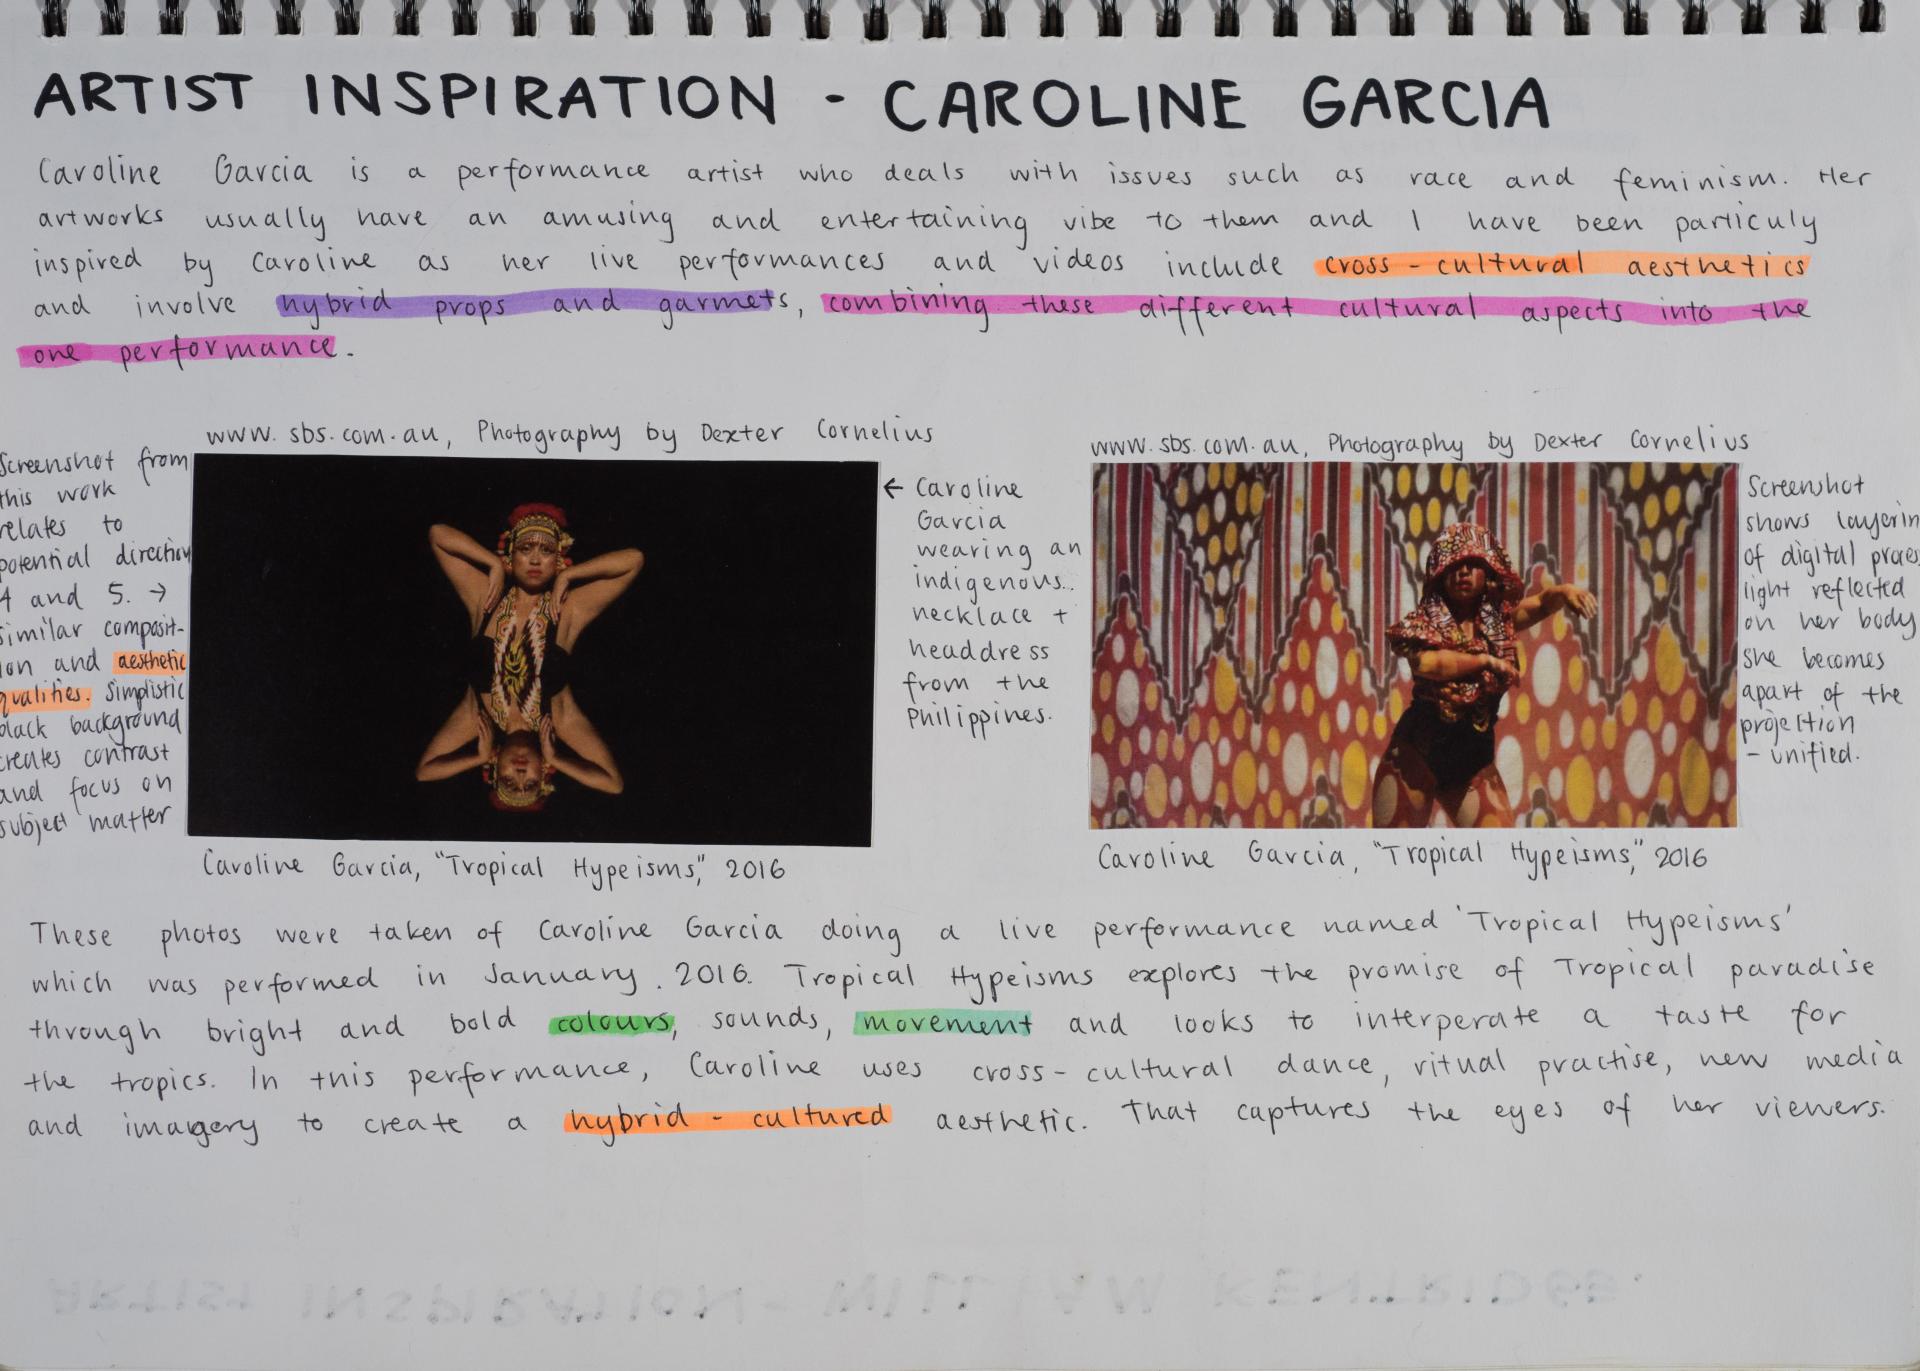 ARTIST INSPIRATION - CAROLINE GARCIA
Caroline Garcia is a performance artist who deals with issues such as race and feminism. Her
artworks usually have an amusing and entertaining vibe to them and I have been particuly
inspired by Caroline as her live performances and videos include cross-cultural aesthetics
and involve hybrid props and garmets, combining these different cultural aspects into the
one performance.
www.sbs.com.au, Photography by Dexter Cornelius
Screenshot from
this work
relates to
potential direction
4 and 5. →
similar composit-
ion and aesthetic
qualities. Simplistic
black background
creates contrast
and focus on
subject matter
← Caroline
Garcia
wearing an
indigenous..
necklace +
headdress
from the
Philippines.
Caroline Garcia, "Tropical Hypeisms," 2016
www.sbs.com.au, Photography by Dexter Cornelius
Screenshot
shows layerin
of digital proces
light reflected
on her body
she becomes
apart of the
projection
- unified.
Caroline Garcia, "Tropical Hypeisms," 2016
These photos were taken of Caroline Garcia doing a live performance named 'Tropical Hypeisms'
which was performed in January. 2016. Tropical Hypeisms explores the promise of Tropical paradise
through bright and bold colours, sounds, movement and looks to interperate a taste for
the tropics. In this performance, Caroline uses cross-cultural dance, ritual practise, new media
and imagery to create a hybrid-cultured aesthetic. That captures the eyes of her viewers.
ARTIST INSPIRATION - WILLIAM KENTRIDGE